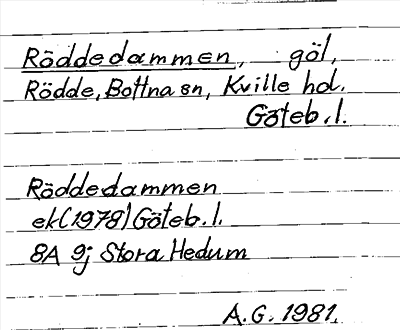 Röddedammen, göl,
Rödde, Bottna sn, Kville hd.
Göteb. l.
Röddedammen
ek (1978) Göteb. l.
8A 9j Stora Hedum
A.G. 1981.